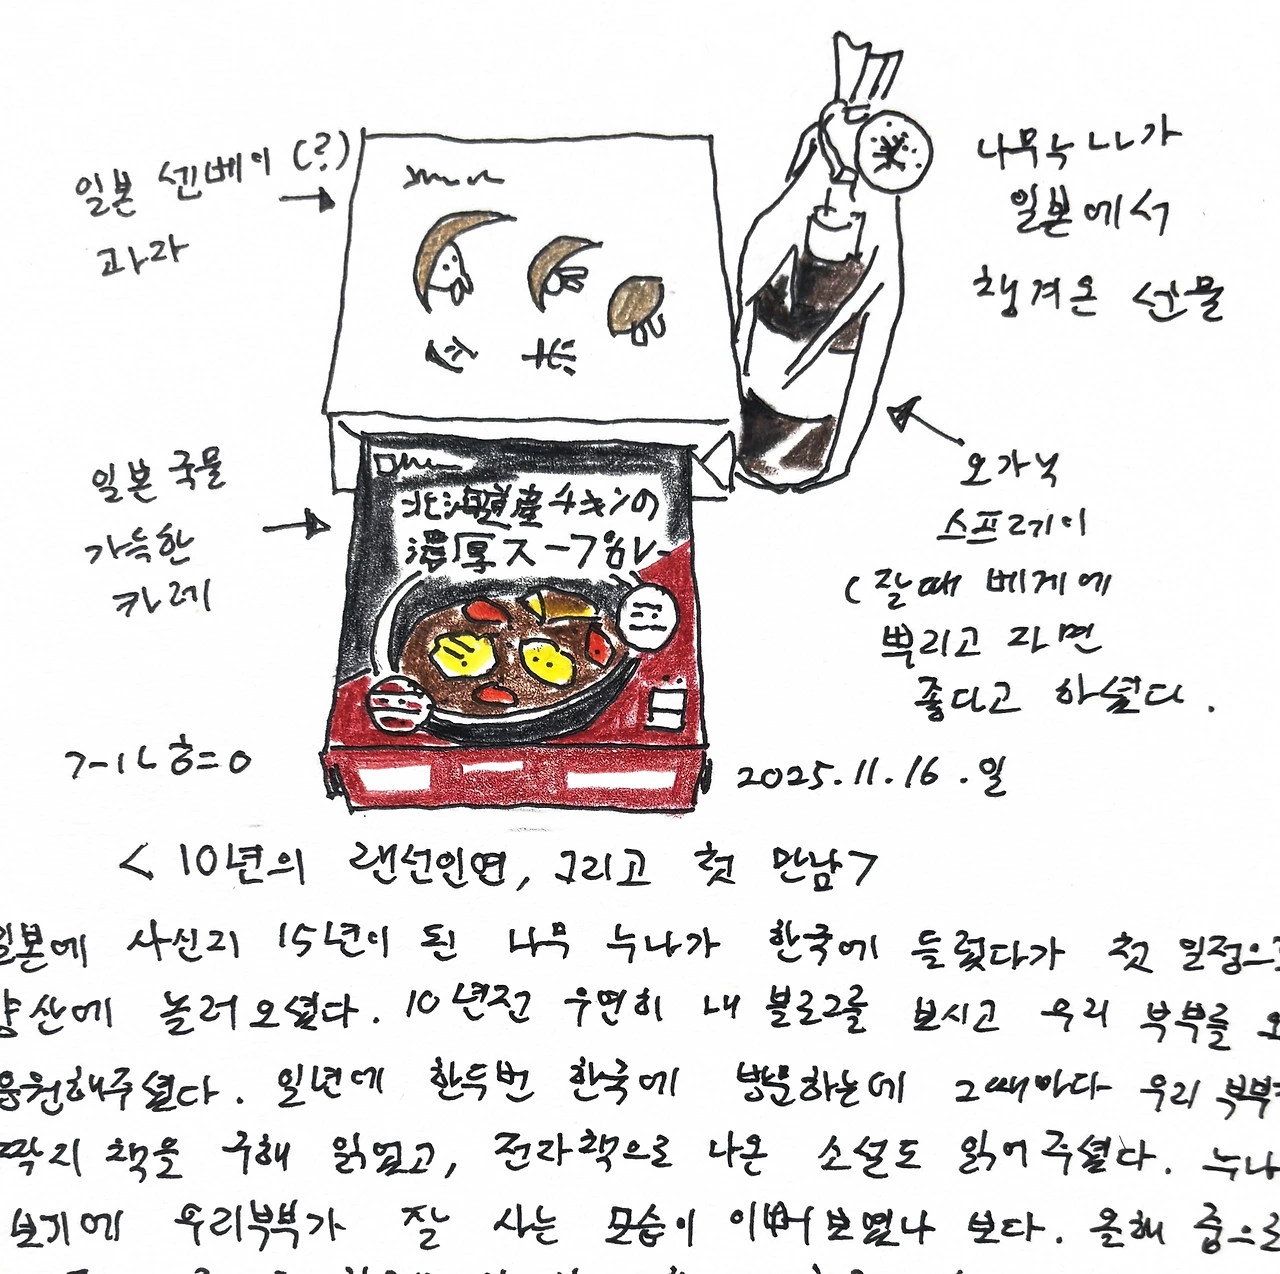 일본 센베이 (?)
과자
나무누나가
일본에서
챙겨온 선물
일본 국물
가득한
카레
北海道産チキンの
濃厚スープカレー
오가닉
스프레이
(잘때 베게에
뿌리고 자면
좋다고 하셨다.
그나흐=ㅇ
2025.11.16.일
<10년의 랜선인연, 그리고 첫 만남>
일본에 사신지 15년이 된 나무 누나가 한국에 들렀다가 첫 일정으로
양산에 놀러오셨다. 10년전 우연히 내 블로그를 보시고 우리 부부를
응원해주셨다. 일년에 한두번 한국에 방문하는데 그때마다 우리 부부
딱지 책을 구해 읽었고, 전자책으로 나온 소설도 읽어주셨다. 누나
보기에 우리부부가 잘 사는 모습이 이뻐보였나 보다. 올해 중으로